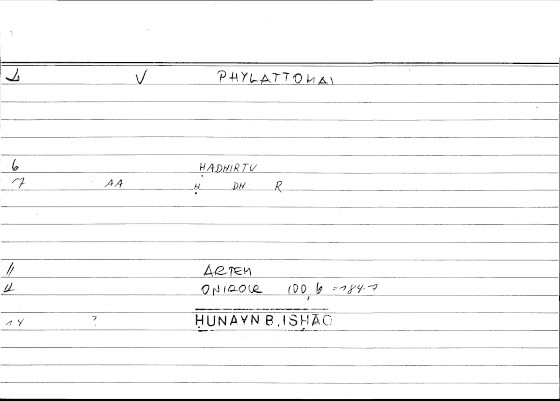 V PHYLATTOMAI
6 HADHIRTU
7 AA Ḥ DH R
11 ARTEM
ONIROCR 100,6 = 184.7
14 ? ḤUNAYN B. ISḤĀQ